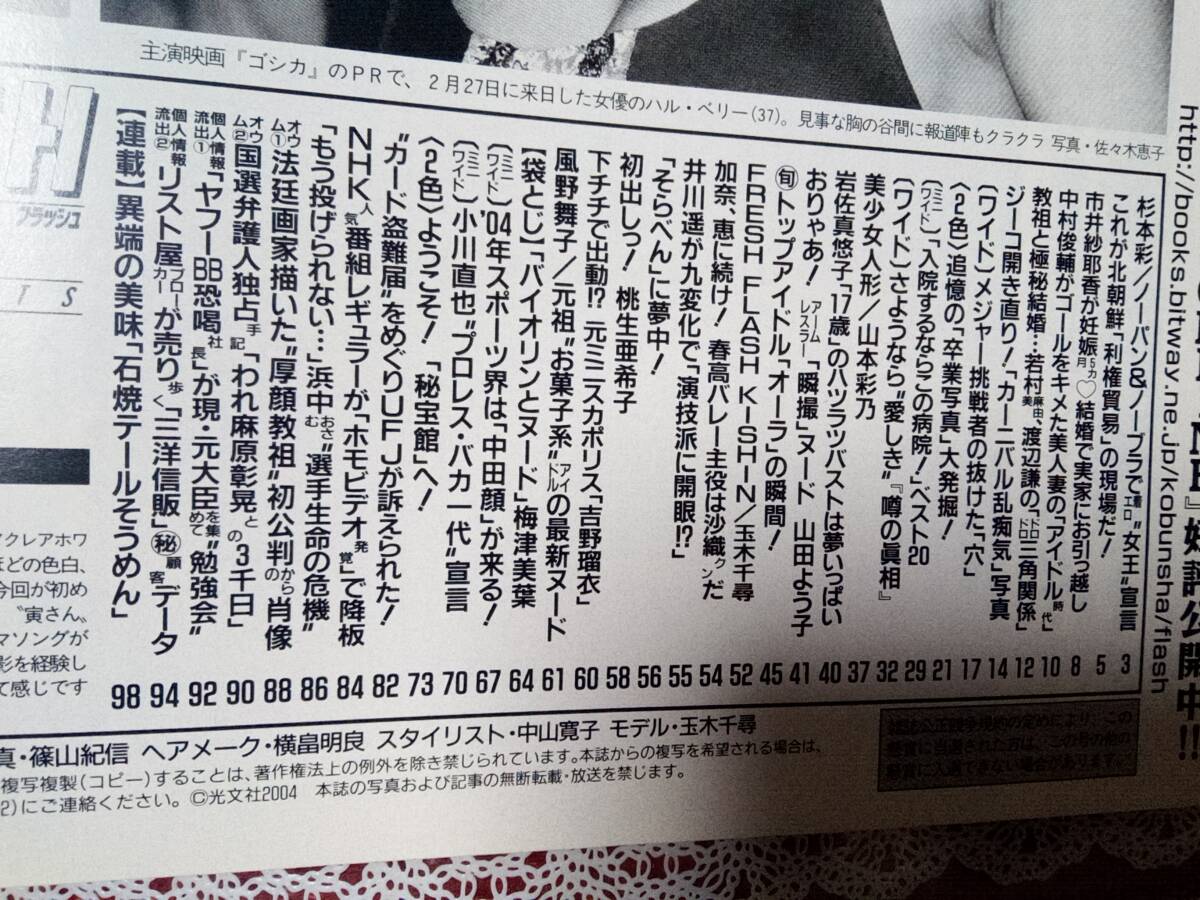 主演映画『ゴシカ』のPRで、2月27日に来日した女優のハル・ベリー(37)。見事な胸の谷間に報道陣もクラクラ 写真・佐々木恵子
http://books.bitway.ne.jp/kobunsha/flash
好評公開中!!
フラッシュ
杉本彩/ノーパン&ノーブラで"エロ着女王"宣言 3
これが北朝鮮「利権貿易」の現場だ! 5
市井紗耶香が妊娠5カ月♡結婚で実家にお引っ越し 8
中村俊輔がゴールをキメた美人妻の「アイドル時代」 10
教祖と極秘結婚…若村麻由美、渡辺謙の「ドロドロ三角関係」 12
ジーコ開き直り!「カーニバル乱痴気」写真 14
(ワイド)メジャー挑戦者の抜けた「穴」 17
〈2色〉追憶の「卒業写真」大発掘! 21
(ミニワイド)「入院するならこの病院!」ベスト20 29
(ワイド)さようなら"愛しき"『噂の眞相』 32
美少女人形/山本彩乃 37
岩佐真悠子「17歳」のハツラツバストは夢いっぱい 40
おりゃあ!アームレスラー「瞬撮」ヌード 山田よう子 41
㊬トップアイドル「オーラ」の瞬間! 45
FRESH FLASH KISHIN/玉木千尋 52
加奈、恵に続け! 春高バレー主役は沙織クンだ 54
井川遥が九変化で「演技派に開眼!?」 55
「そらべん」に夢中! 56
初出しっ! 桃生亜希子 58
下チチで出動!? 元ミニスカポリス「吉野瑠衣」 60
風野舞子/元祖"お菓子系"アイドルの最新ヌード 61
【袋とじ】「バイオリンとヌード」梅津美葉 64
(ミニワイド)'04年スポーツ界は「中田顔」が来る! 67
(ミニワイド)小川直也"プロレス・バカ一代"宣言 70
〈2色〉ようこそ!「秘宝館」へ! 73
"カード盗難届"をめぐりUFJが訴えられた! 82
NHK人気番組レギュラーが「ホモビデオ発覚」で降板 84
「もう投げられない…」浜中おさむ"選手生命の危機" 86
オウム①法廷画家描いた"厚顔教祖"初公判からの肖像 88
オウム②国選弁護人独占手記「われ麻原彰晃との3千日」 90
個人情報流出①「ヤフーBB恐喝社長」が現・元大臣を集めて"勉強会" 92
個人情報流出②リスト屋ブローカーが売り歩く「三洋信販」㊙顧客データ 94
【連載】異端の美味「石焼テールそうめん」 98
クレアホワ
ほどの色白、
今回が初め
"寅さん"
マソングが
影を経験し
て感じです
真・篠山紀信 ヘアメーク・横畠明良 スタイリスト・中山寛子 モデル・玉木千尋
複写複製(コピー)することは、著作権法上の例外を除き禁じられています。本誌からの複写を希望される場合は、
2)にご連絡ください。©光文社2004 本誌の写真および記事の無断転載・放送を禁じます。
雑誌公正競争規約の定めにより、この
懸賞に当選された方は、この号の他の
懸賞に入選できない場合があります。